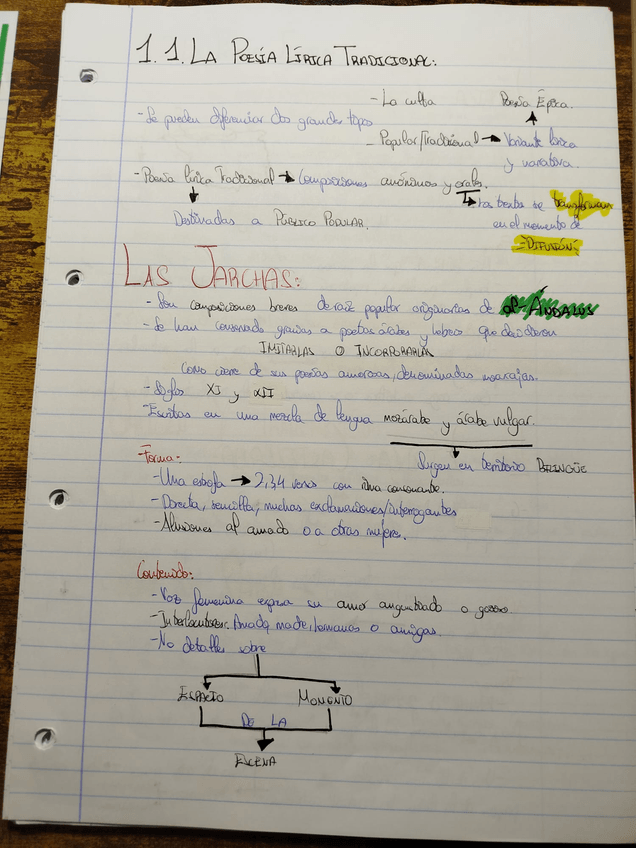 1.1. LA POESÍA LÍRICA TRADICIONAL:
- La culta
Poesía Épica.
- Se pueden diferenciar dos grandes tipos
- Popular/Tradicional → Variante lírica
y narrativa.
- Poesía lírica Tradicional → Composiciones anónimas y orales.
Los textos se transforman
Destinadas a PÚBLICO POPULAR.
en el momento de
DIFUSIÓN.
LAS JARCHAS:
- Son composiciones breves de raíz popular originarias de al-ÁNDALUS
- Se han conservado gracias a poetas árabes y hebreo que decidieron
IMITARLAS O INCORPORARLAS
como cierre de sus poesías amorosas, denominadas moaxajas.
- Siglos XI y XII
- Escritas en una mezcla de lengua mozárabe y árabe vulgar.
Surgen en territorio BILINGÜE
Forma:
- Una estrofa → 2,3,4 versos con rima consonante.
- Directa, sencilla, muchas exclamaciones/interrogantes
- Alusiones al amado o a otras mujeres.
Contenido:
- Voz femenina expresa su amor angustiado o gozoso
- Interlocutores: Amado, madre, hermanas o amigas.
- No detalles sobre
ESPACIO MOMENTO
DE LA
ESCENA